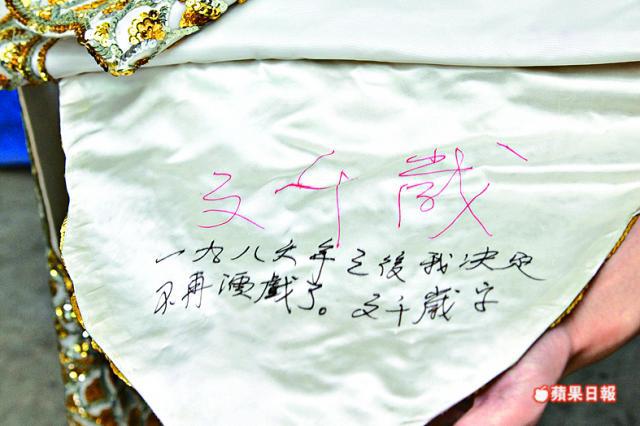 文千歲
一九八六年之後我决定
不再演戲了。文千歲字
蘋果日報